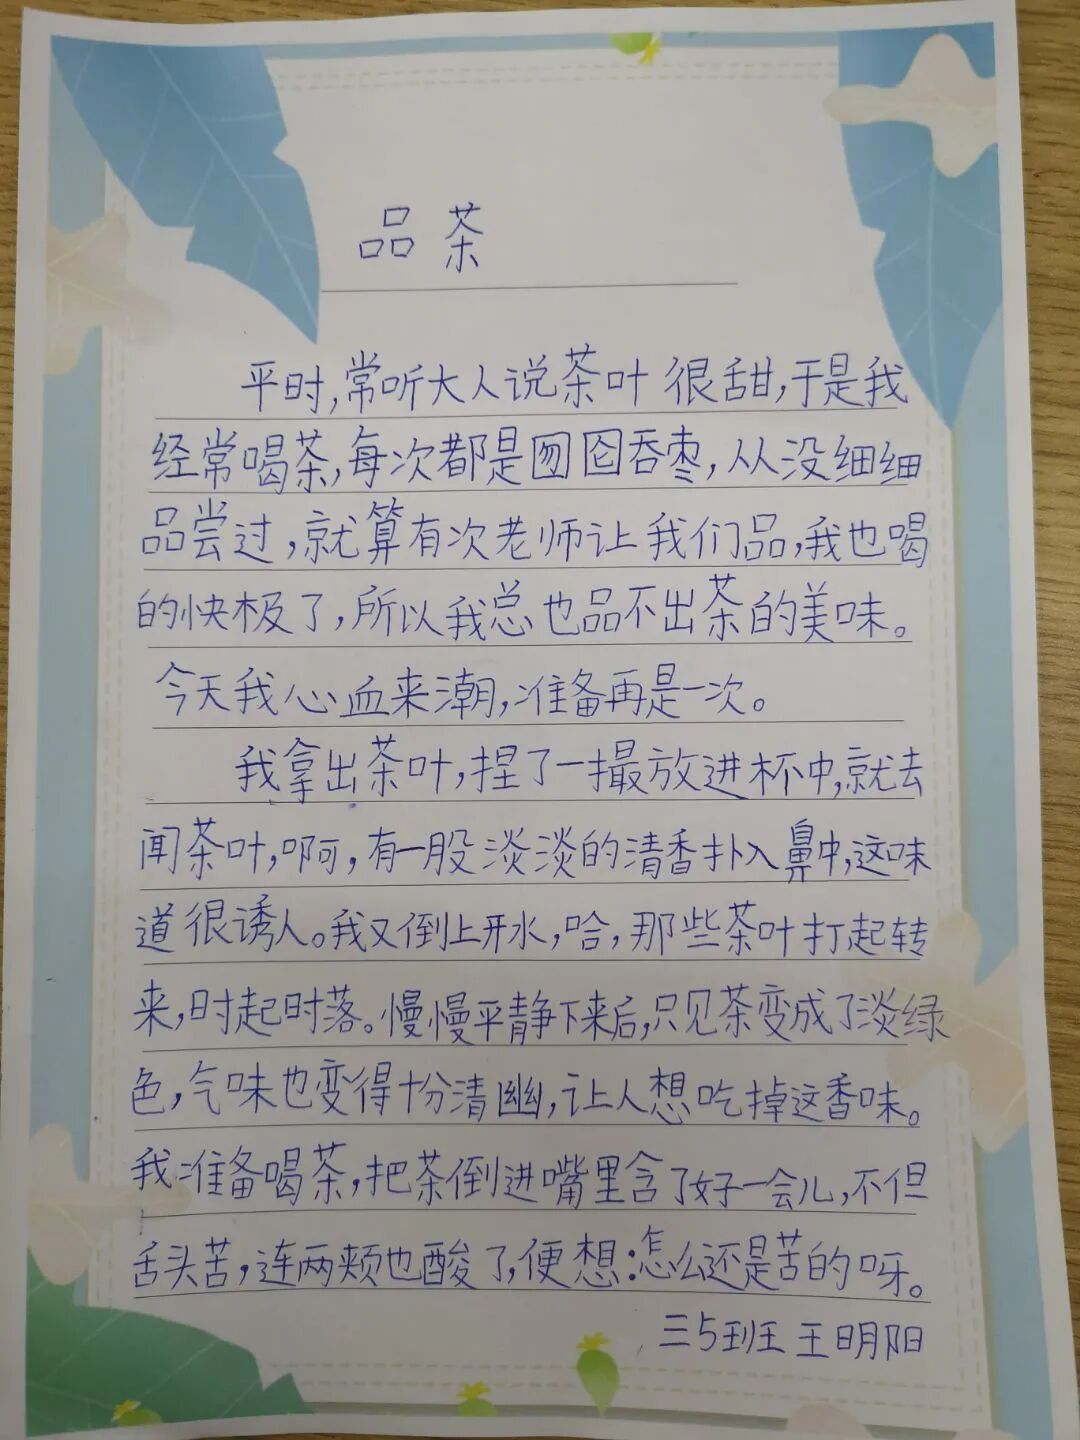 品茶
平时,常听大人说茶叶很甜,于是我
经常喝茶,每次都是囫囵吞枣,从没细细
品尝过,就算有次老师让我们品,我也喝
的快极了,所以我总也品不出茶的美味。
今天我心血来潮,准备再是一次。
我拿出茶叶,捏了一撮放进杯中,就去
闻茶叶,啊,有一股淡淡的清香扑入鼻中,这味
道很诱人。我又倒上开水,哈,那些茶叶打起转
来,时起时落。慢慢平静下来后,只见茶变成了淡绿
色,气味也变得十份清幽,让人想吃掉这香味。
我准备喝茶,把茶倒进嘴里含了好一会儿,不但
舌头苦,连两颊也酸了,便想:怎么还是苦的呀。
三5班 王明阳